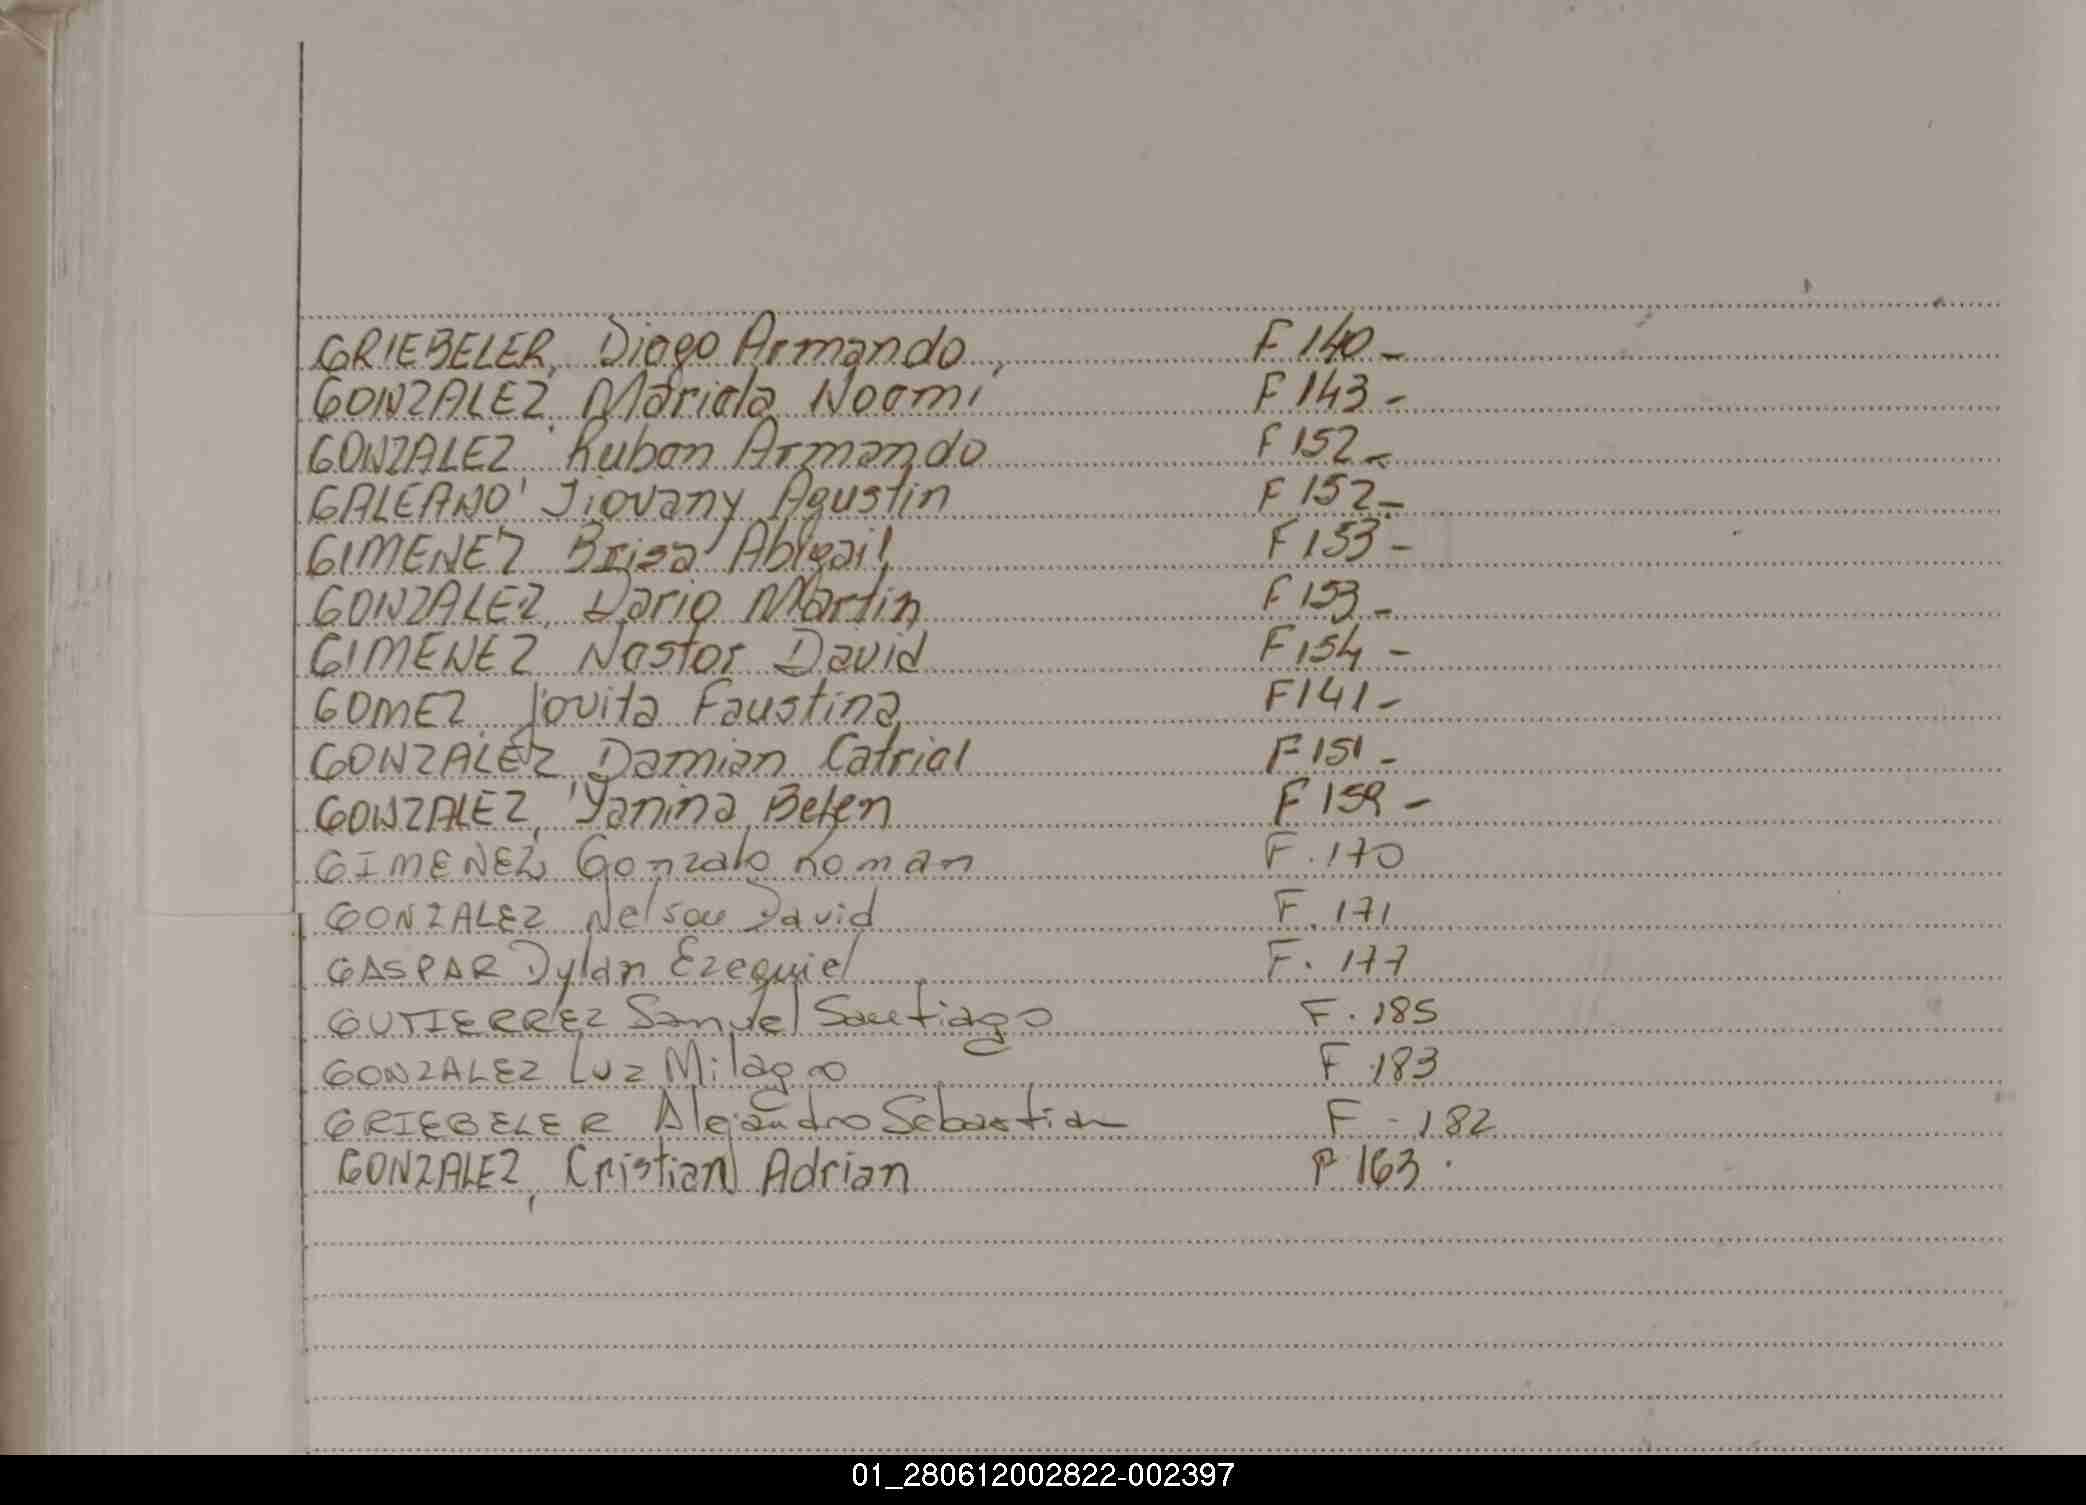 GRIEBELER, Diego Armando, F 140-
GONZALEZ, Mariela Noemi F 143-
GONZALEZ Ruben Armando F 152-
GALEANO, Jiovany Agustin F 152-
GIMENEZ, Brisa Abigail F 153-
GONZALEZ, Dario Martin F 153-
GIMENEZ Nestor David F 154-
GOMEZ Jovita Faustina F 141-
GONZALEZ Damian Catriel F 151-
GONZALEZ, Yanina Belen F 159-
GIMENEZ Gonzalo Roman F. 170
GONZALEZ Nelson David F. 171
GASPAR Dylan Ezequiel F. 177
GUTIERREZ Samuel Santiago F. 185
GONZALEZ Luz Milagro F 183
GRIEBELER Alejandro Sebastian F - 182
GONZALEZ, Cristian Adrian F 163.
01_280612002822-002397